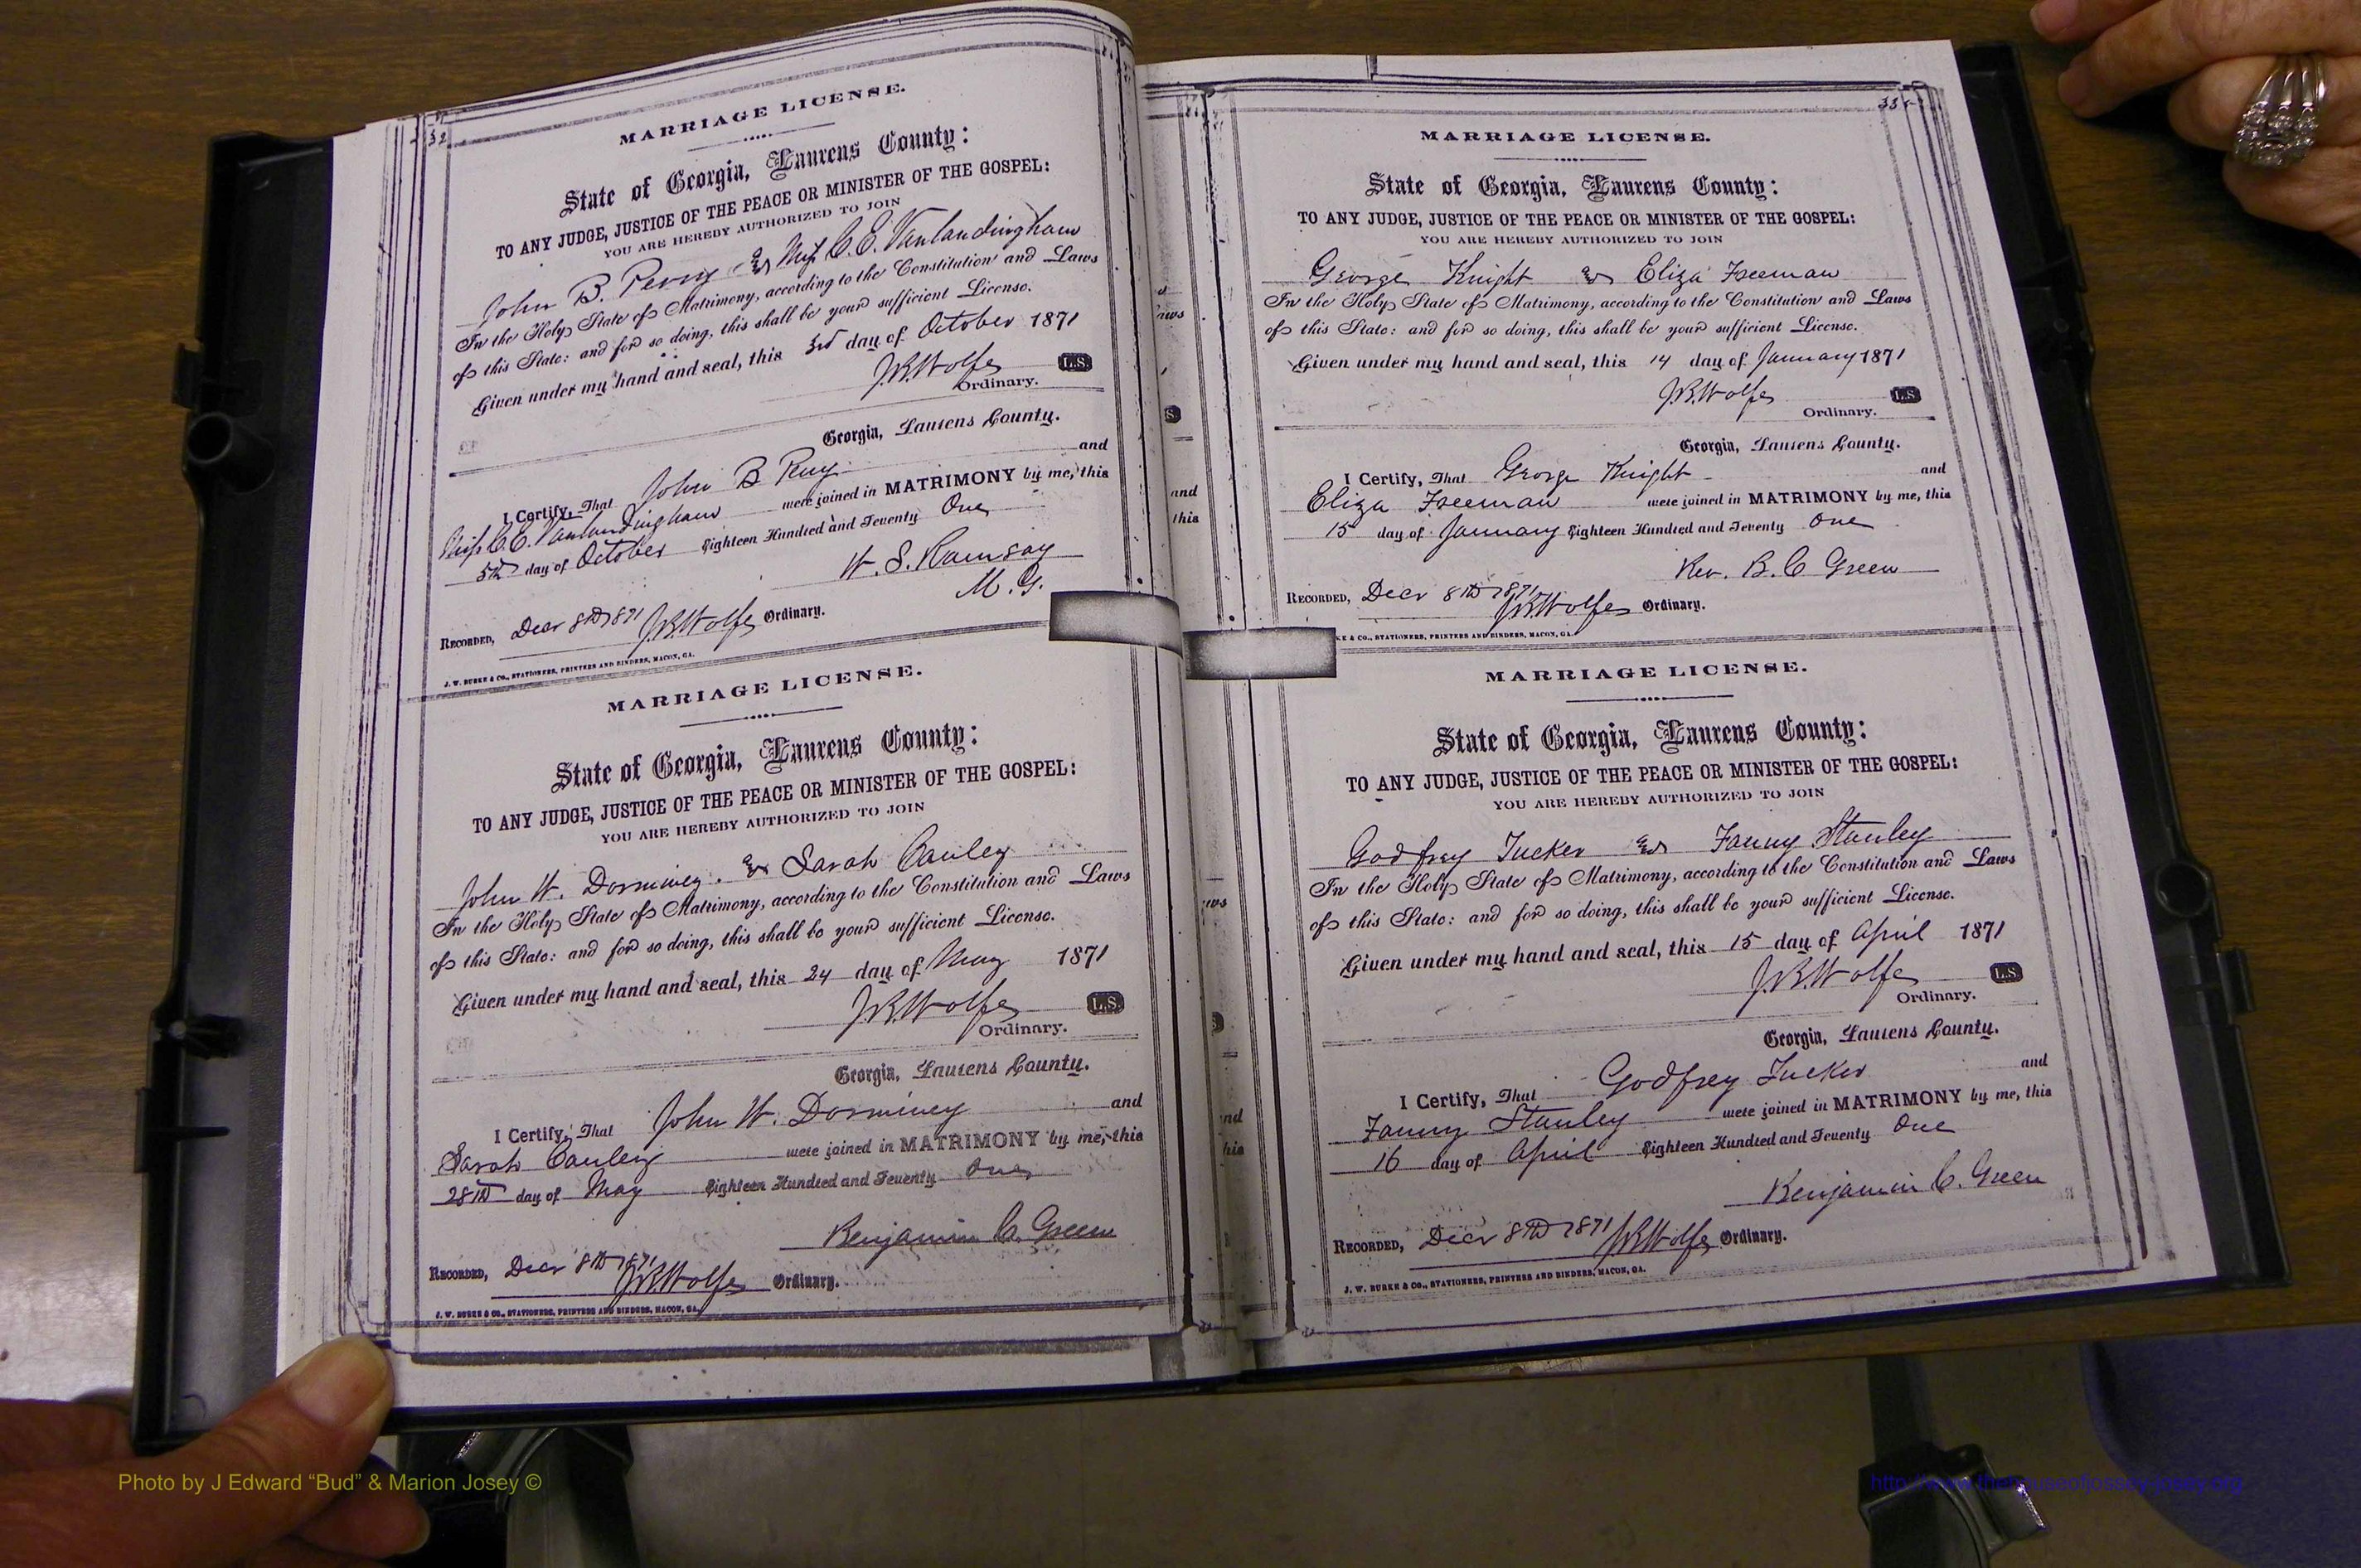 32
MARRIAGE LICENSE.
State of Georgia, Laurens County:
TO ANY JUDGE, JUSTICE OF THE PEACE OR MINISTER OF THE GOSPEL:
YOU ARE HEREBY AUTHORIZED TO JOIN
John B. Perry & Miss C. E. Vanlandingham
In the Holy State of Matrimony, according to the Constitution and Laws
of this State: and for so doing, this shall be your sufficient License.
Given under my hand and seal, this 3rd day of October 1871
J.B. Wolfe L.S.
Ordinary.
Georgia, Laurens County.
I Certify, That John B Perry and
Miss C. E. Vanlandingham were joined in MATRIMONY by me, this
5th day of October Eighteen Hundred and Seventy One
W. S. Ramsay
M. G.
RECORDED, Decr 8th 1871 J.B. Wolfe Ordinary.
J. W. BURKE & CO., STATIONERS, PRINTERS AND BINDERS, MACON, GA.
MARRIAGE LICENSE.
State of Georgia, Laurens County:
TO ANY JUDGE, JUSTICE OF THE PEACE OR MINISTER OF THE GOSPEL:
YOU ARE HEREBY AUTHORIZED TO JOIN
John W. Dorminey. & Sarah Cauley
In the Holy State of Matrimony, according to the Constitution and Laws
of this State: and for so doing, this shall be your sufficient License.
Given under my hand and seal, this 24 day of May 1871
J.B. Wolfe L.S.
Ordinary.
Georgia, Laurens County.
I Certify, That John W. Dorminey and
Sarah Cauley were joined in MATRIMONY by me, this
28th day of May Eighteen Hundred and Seventy One
Benjamin C. Green
RECORDED, Decr 8th 1871 J.B. Wolfe Ordinary.
J. W. BURKE & CO., STATIONERS, PRINTERS AND BINDERS, MACON, GA.
MARRIAGE LICENSE.
State of Georgia, Laurens County:
TO ANY JUDGE, JUSTICE OF THE PEACE OR MINISTER OF THE GOSPEL:
YOU ARE HEREBY AUTHORIZED TO JOIN
George Knight & Eliza Freeman
In the Holy State of Matrimony, according to the Constitution and Laws
of this State: and for so doing, this shall be your sufficient License.
Given under my hand and seal, this 14 day of January 1871
J.B. Wolfe L.S.
Ordinary.
Georgia, Laurens County.
I Certify, That George Knight and
Eliza Freeman were joined in MATRIMONY by me, this
15 day of January Eighteen Hundred and Seventy One
Rev. B. C Green
RECORDED, Decr 8th 1871 J.B. Wolfe Ordinary.
KE & CO., STATIONERS, PRINTERS AND BINDERS, MACON, GA.
MARRIAGE LICENSE.
State of Georgia, Laurens County:
TO ANY JUDGE, JUSTICE OF THE PEACE OR MINISTER OF THE GOSPEL:
YOU ARE HEREBY AUTHORIZED TO JOIN
Godfrey Tucker & Fanny Stanley
In the Holy State of Matrimony, according to the Constitution and Laws
of this State: and for so doing, this shall be your sufficient License.
Given under my hand and seal, this 15 day of April 1871
J.B. Wolfe L.S.
Ordinary.
Georgia, Laurens County.
I Certify, That Godfrey Tucker and
Fanny Stanley were joined in MATRIMONY by me, this
16 day of April Eighteen Hundred and Seventy One
Benjamin C. Green
RECORDED, Decr 8th 1871 J.B. Wolfe Ordinary.
J. W. BURKE & CO., STATIONERS, PRINTERS AND BINDERS, MACON, GA.
Photo by J Edward “Bud” & Marion Josey ©
http://www.thehouseofjossey-josey.org